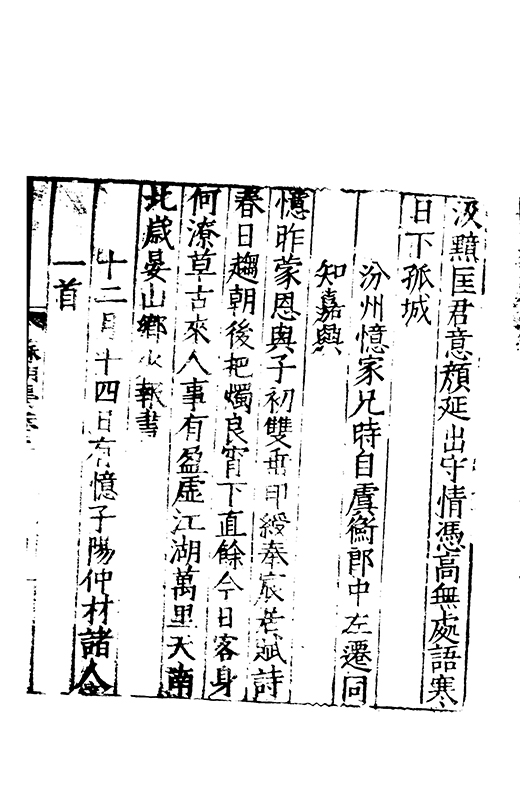 汲黯匡君意顔延出守情憑高無處語寒
日下孤城
汾州憶家兄時自虞衡郎中左遷同
知嘉興
憶昨蒙恩與子初雙垂印綬奉宸居賦詩
春日趨朝後把燭良宵下直餘今日客身
何潦草古來人事有盈虛江湖萬里天南
北歲晏山鄉少報書
十二月十四日有憶子陽仲材諸人
一首